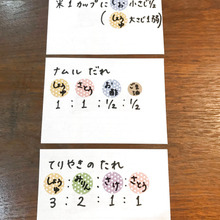 米1カップに しお 小さじ1/2
(しょうゆ 大さじ1弱)
ナムルだれ
しょうゆ さとう お酢 ごま油
1 : 1 : 1/2 : 1/2
てりやきのたれ
しょうゆ : みりん : さけ : さとう
3 : 2 : 1 : 1